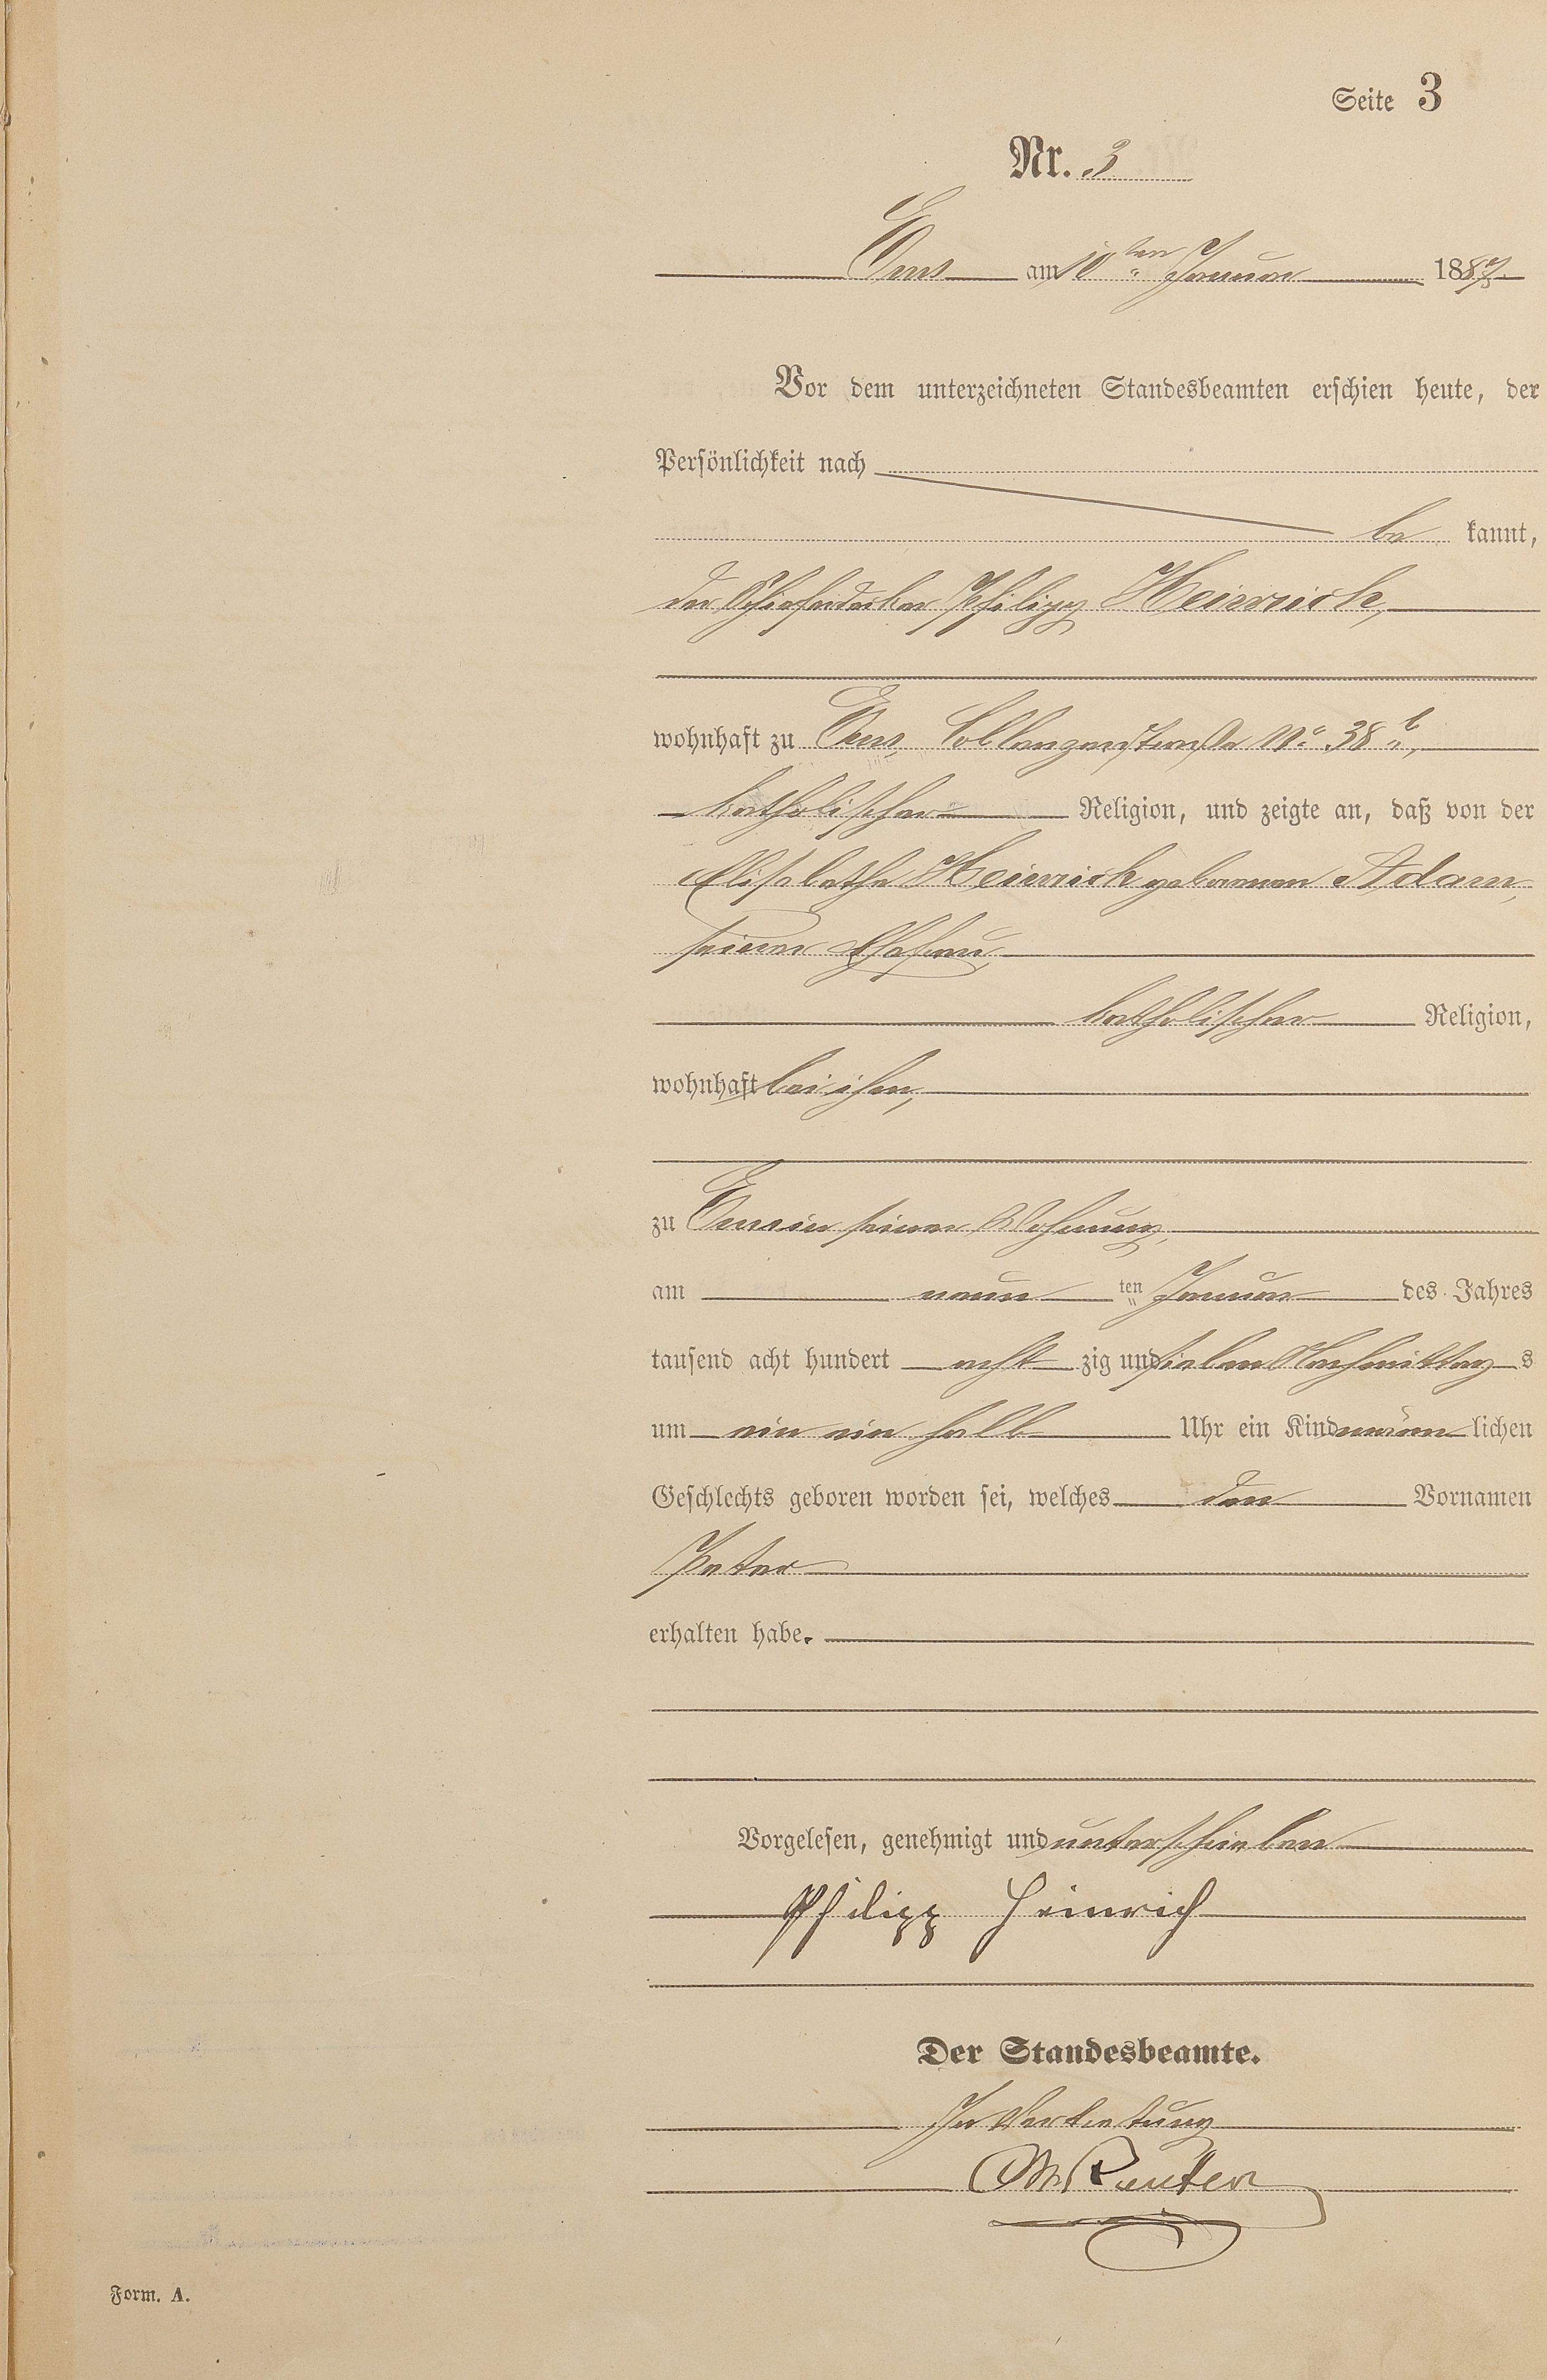 Seite 3
Nr. 3
Ems am 10ten Januar 1887.
Vor dem unterzeichneten Standesbeamten erschien heute, der
Persönlichkeit nach
be kannt,
der Schieferdecker Philipp Heinrich,
wohnhaft zu Ems, Coblenzerstraße No 38b,
katholischer Religion, und zeigte an, daß von der
Elisabethe Heinrich geborenen Adam,
seiner Ehefrau,
katholischer Religion,
wohnhaft bei ihm,
zu Ems in seiner Wohnung,
am neun ten Januar des Jahres
tausend acht hundert acht zig und sieben Nachmittag s
um ein ein halb Uhr ein Kind männ lichen
Geschlechts geboren worden sei, welches den Vornamen
Peter
erhalten habe.
Vorgelesen, genehmigt und unterschrieben
Philipp Heinrich
Der Standesbeamte.
In Vertretung
Reuter
Form. A.